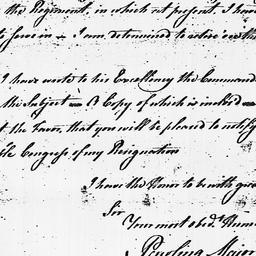 the Regiment, in which at present, I have
to serve in — I am, determined to retire on the
I have wrote to his Excellency the Command
the Subject — A Copy of which is inclosed —
t the Favor, that you will be pleased to notify
ble Congress of my Resignation
I have the Honor to be with grea
Sir
Your most obedt. Hum
Major